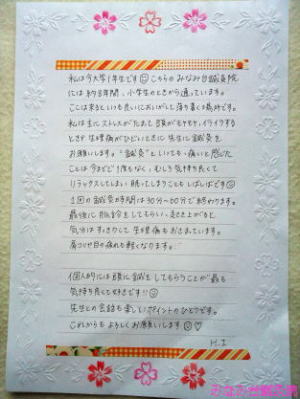 私は今大学1年生です☺こちらのみなみ台鍼灸院
には約8年間、小学生のときから通っています。
ここは来るといつも良いにおいがして落ち着く場所です。
私は主にストレスがたまって頭がモヤモヤ、イライラする
ときや生理痛がひどいときに先生に鍼灸を
お願いします。"鍼灸"といっても、痛いと感じた
ことは今まで1度もなく、むしろ気持ち良くて
リラックスしてしまい眠ってしまうこともしばしばです☺
1回の鍼灸の時間は30分〜60分で終わります。
最後に をしてもらい、起き上がると
気分はすっきりして生理痛もおさまっています。
肩こりや目の疲れも軽くなります。
個人的には頭に鍼をしてもらうことが最も
気持ち良くて好きです!!☺
先生との会話も楽しいポイントのひとつです。
これからもよろしくお願いします☺♡
H.I
みなみ台鍼灸院